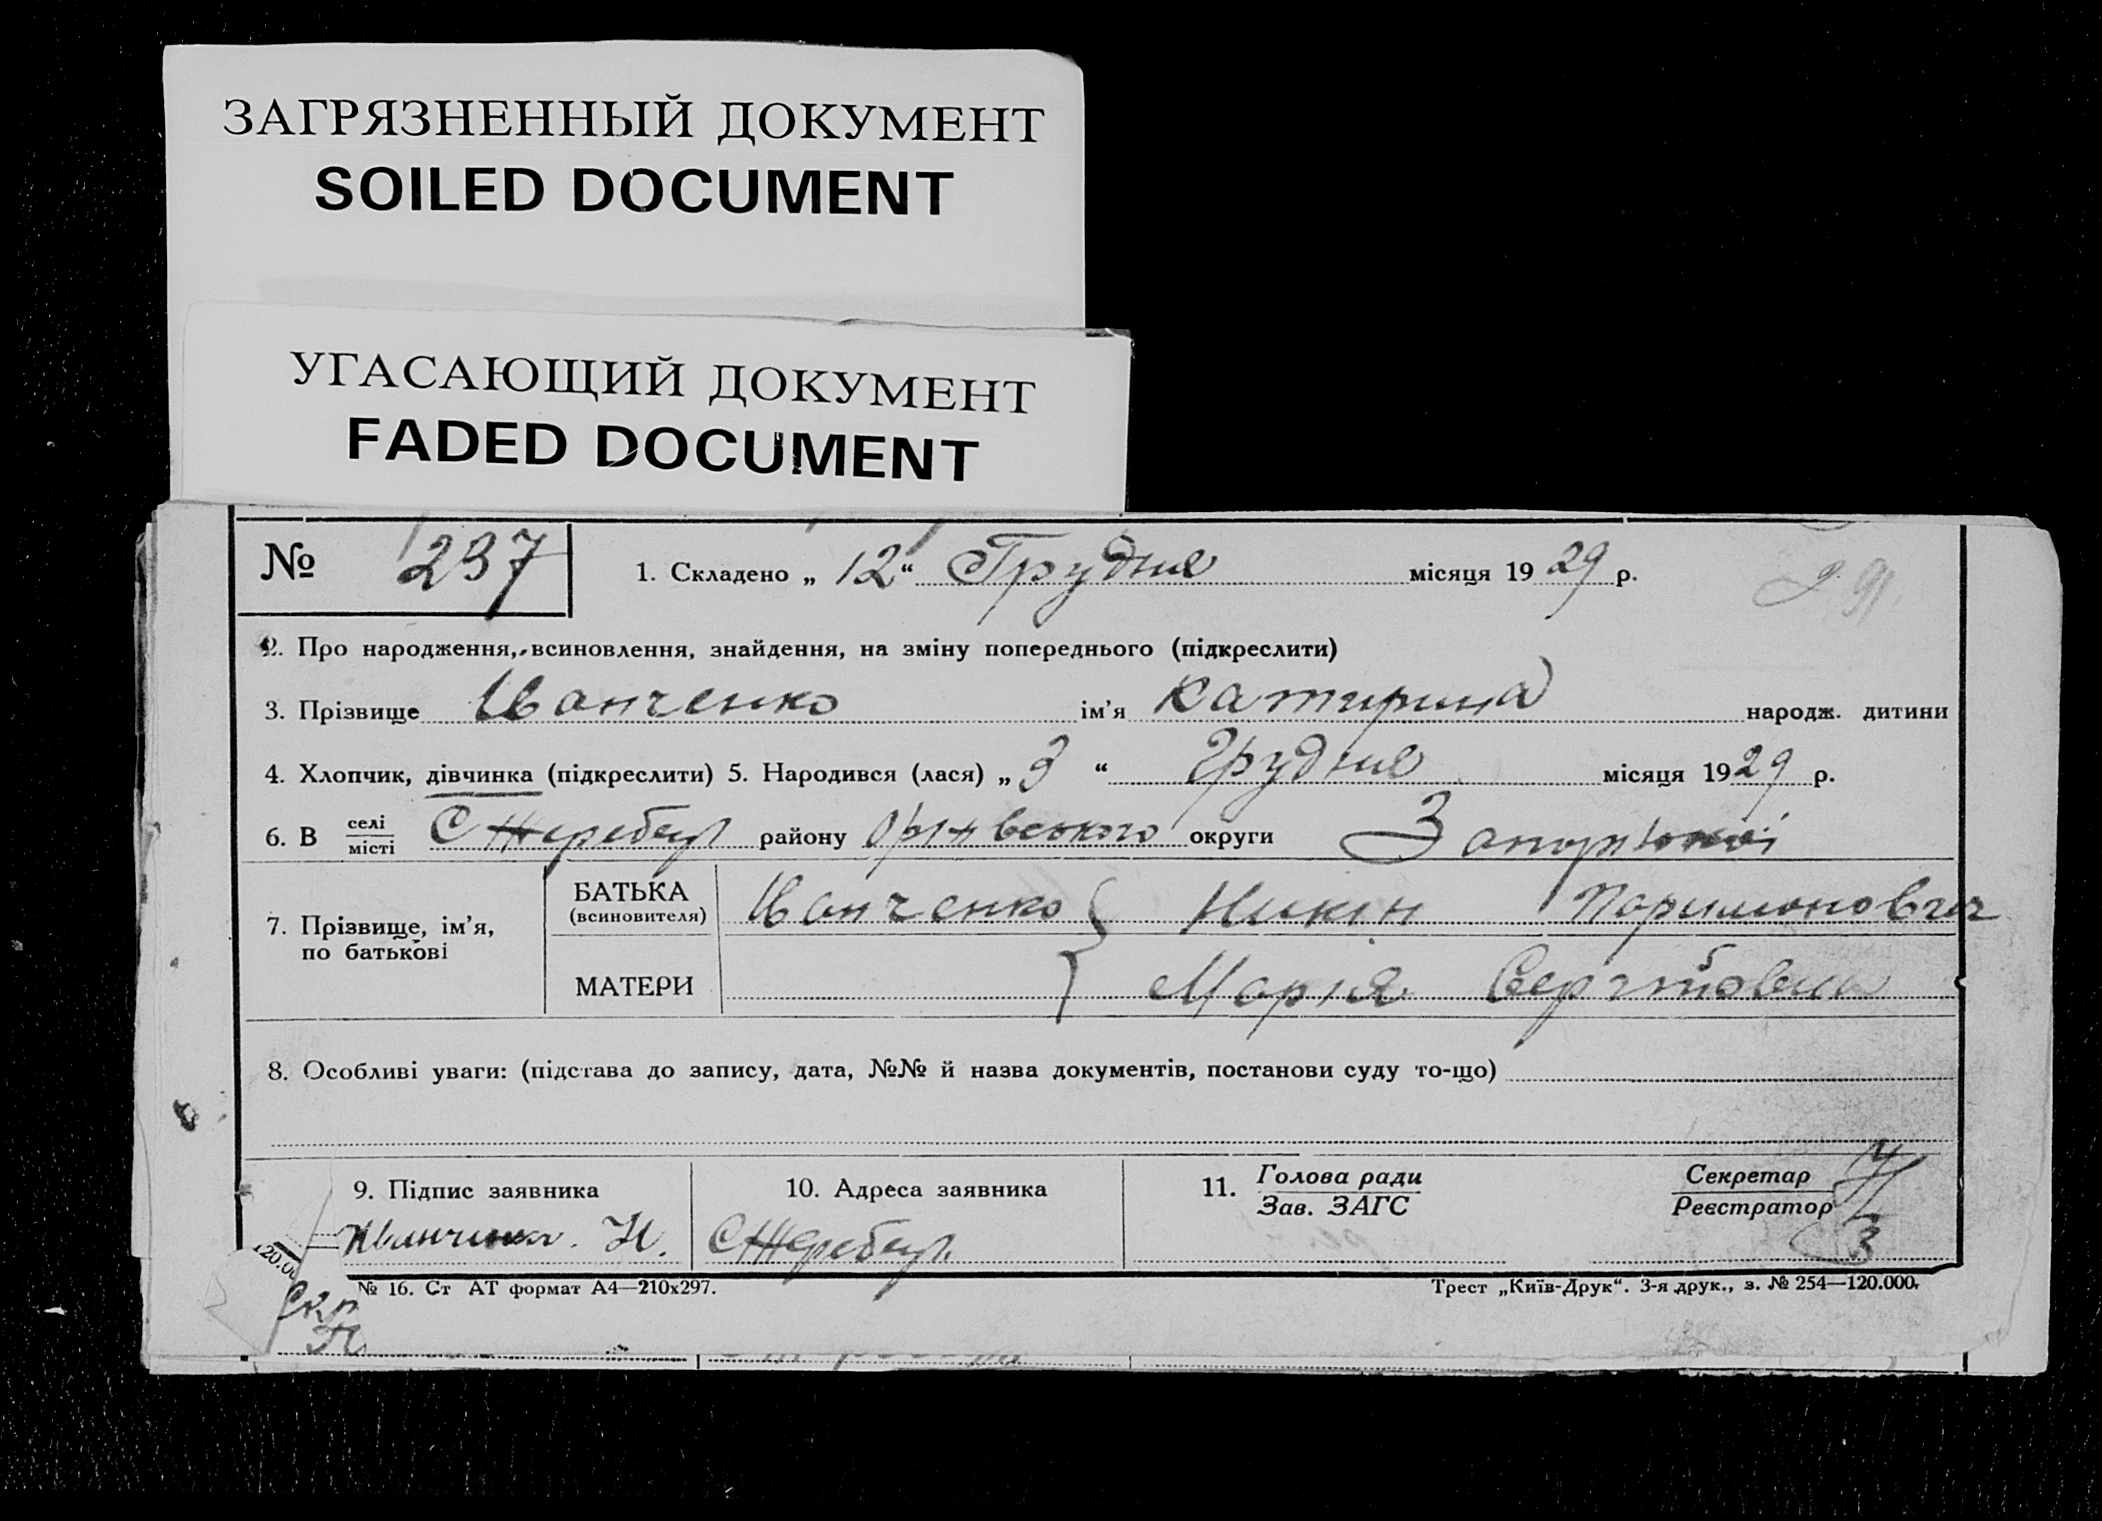 ЗАГРЯЗНЕННЫЙ ДОКУМЕНТ
SOILED DOCUMENT
УГАСАЮЩИЙ ДОКУМЕНТ
FADED DOCUMENT
№ 237 1. Складено „ 12 “ Грудня місяця 19 29 р.
2. Про народження, всиновлення, знайдення, на зміну попереднього (підкреслити)
3. Прізвище Іванченко ім’я Катирина народж. дитини
4. Хлопчик, дівчинка (підкреслити) 5. Народився (лася) „ 3 “ Грудня місяця 19 29 р.
6. В селі/місті С Жеребец району Оріхівського округи
7. Прізвище, ім’я, по батькові
БАТЬКА (всиновителя) Іванченко Никін Паримонович
МАТЕРИ Марія Сергіївна
8. Особливі уваги: (підстава до запису, дата, №№ й назва документів, постанови суду то-що)
9. Підпис заявника 10. Адреса заявника 11. Голова ради/Зав. ЗАГС Секретар/Реєстратор
Иванченко. Н. С Жеребец
№ 16. Ст АТ формат А4—210х297. Трест „Київ-Друк“. 3-я друк., з. № 254—120.000.